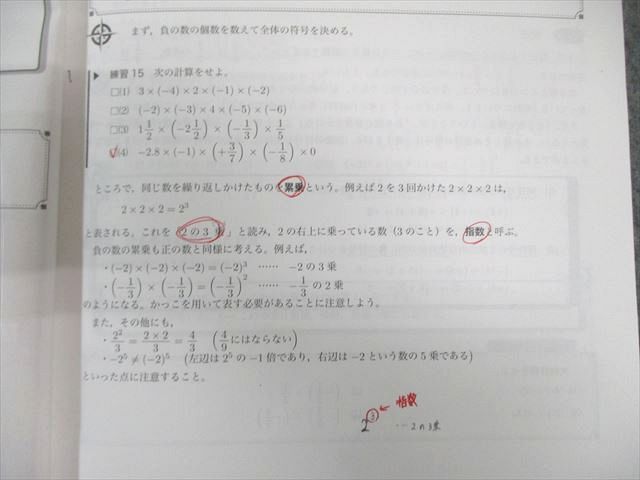 まず，負の数の個数を数えて全体の符号を決める。
練習 15 次の計算をせよ。
□(1) 3×(−4)×2×(−1)×(−2)
□(2) (−2)×(−3)×4×(−5)×(−6)
□(3) 1 1/2 × (−2 1/2) × (−1/3) × 1/5
□(4) −2.8×(−1)×(+3/7)×(−1/8)×0
ところで，同じ数を繰り返しかけたものを累乗という。例えば2を3回かけた2×2×2は，
2×2×2=2³
と表される。これを「2の3乗」と読み，2の右上に乗っている数（3のこと）を，指数と呼ぶ。
負の数の累乗も正の数と同様に考える。例えば，
・(−2)×(−2)×(−2)=(−2)³ …… −2の3乗
・(−1/3)×(−1/3)=(−1/3)² …… −1/3の2乗
のようになる。かっこを用いて表す必要があることに注意しよう。
また，その他にも，
・2²/3=2×2/3=4/3 (4/9にはならない)
・−2⁵≠(−2)⁵ (左辺は2⁵の−1倍であり，右辺は−2という数の5乗である)
といった点に注意すること。
2³ ← 指数
…2の3乗